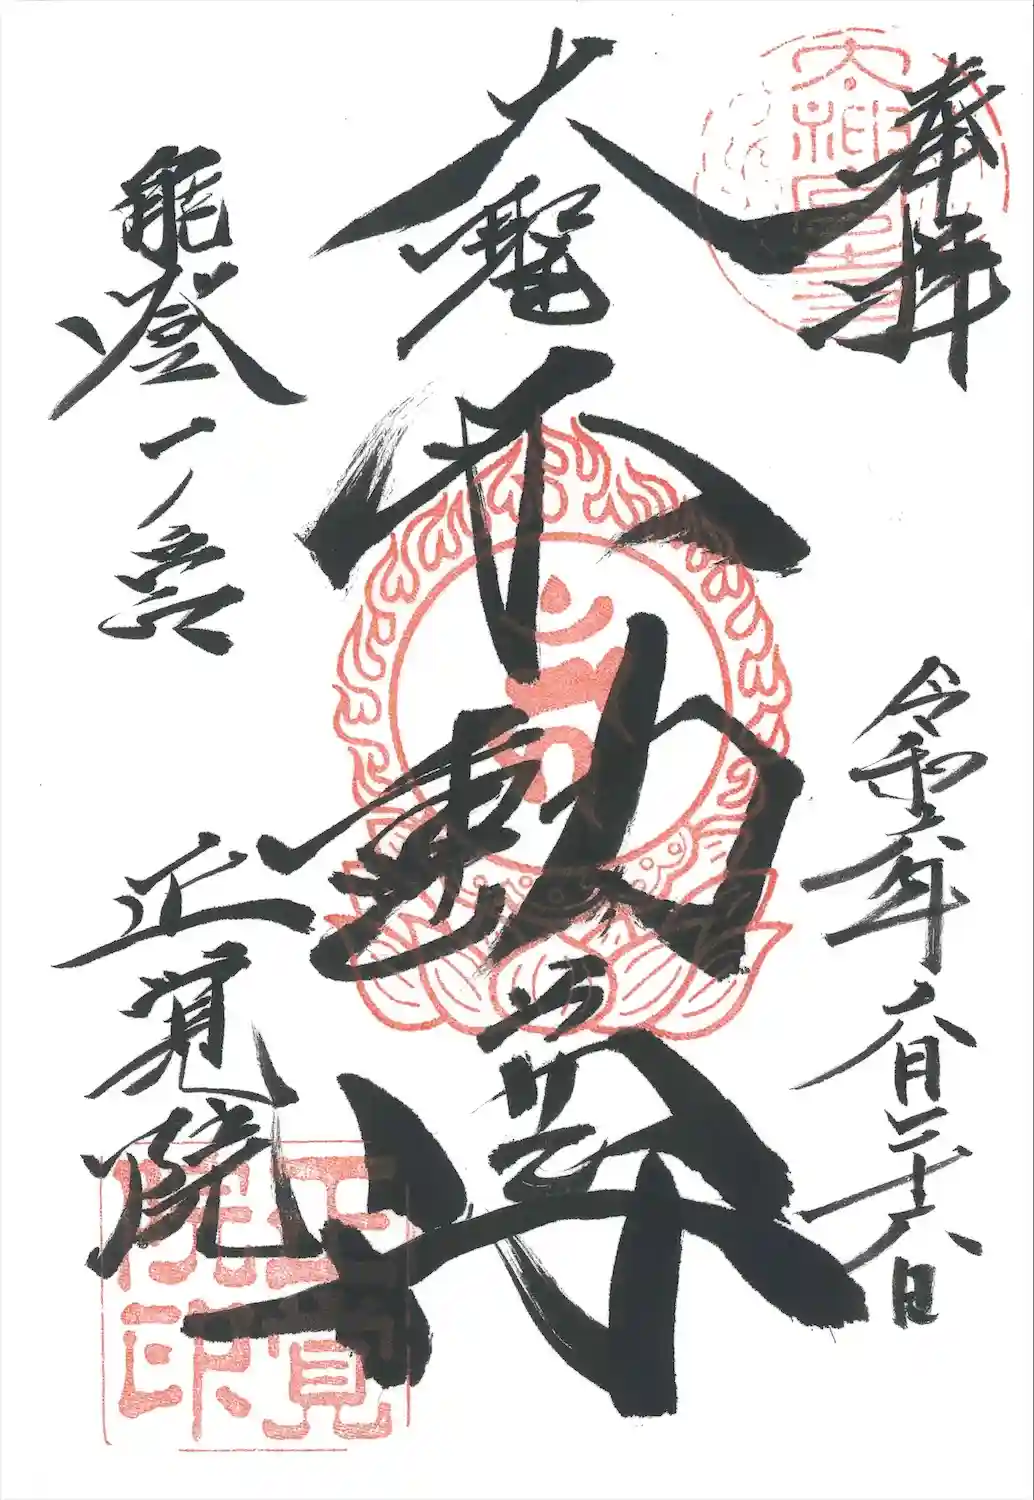 奉拝
令和六年八月二十八日
大聖不動尊
能登一ノ宮
正覚院
正覚院印